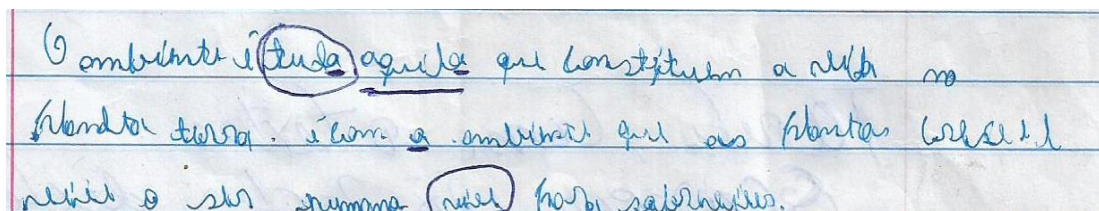 O ambiente é tuda aquila que constituem a vida no
planeta terra. é com a ambiente que as plantas cresce e
o ser humano para